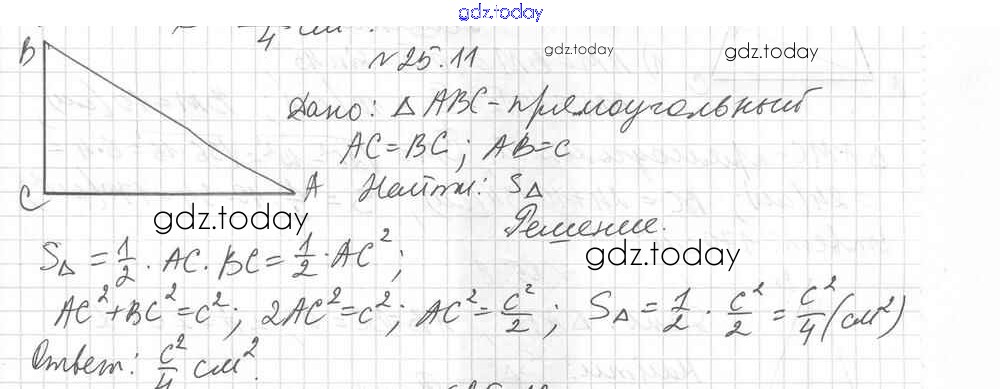 gdz.today
4 см².
N 25.11
gdz.today
gdz.today
Дано: △ ABC - прямоугольный
AC = BC; AB = c
B
C
A
Найти: S△
gdz.today
Решение.
gdz.today
S△ = 1/2 · AC · BC = 1/2 · AC²;
AC² + BC² = c²; 2AC² = c²; AC² = c²/2; S△ = 1/2 · c²/2 = c²/4 (см²)
Ответ: c²/4 см².